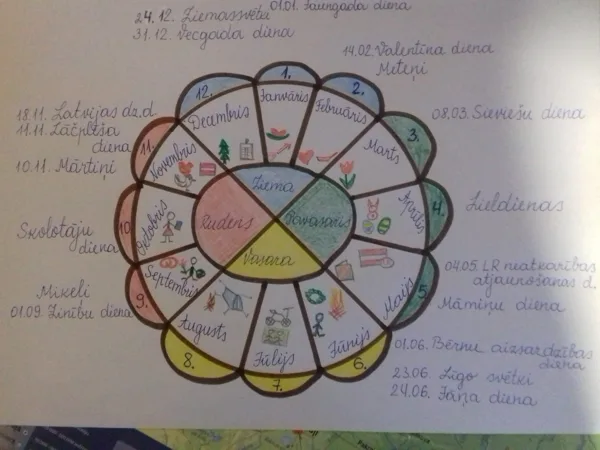 01.01. Jaungada diena
24.12. Ziemassvētki
31.12. Vecgada diena
14.02. Valentīna diena
Meteņi
08.03. Sieviešu diena
Lieldienas
04.05. LR neatkarības
atjaunošanas d.
Māmiņu diena
01.06. Bērnu aizsardzības
diena
23.06. Līgo svētki
24.06. Jāņa diena
18.11. Latvijas dz.d.
11.11. Lāčplēša
diena
10.11. Mārtiņi
Skolotāju
diena
Miķeļi
01.09. Zinību diena
1.
Janvāris
2.
Februāris
3.
Marts
4.
Aprīlis
5.
Maijs
6.
Jūnijs
7.
Jūlijs
8.
Augusts
9.
Septembris
10.
Oktobris
11.
Novembris
12.
Decembris
Ziema
Pavasaris
Vasara
Rudens